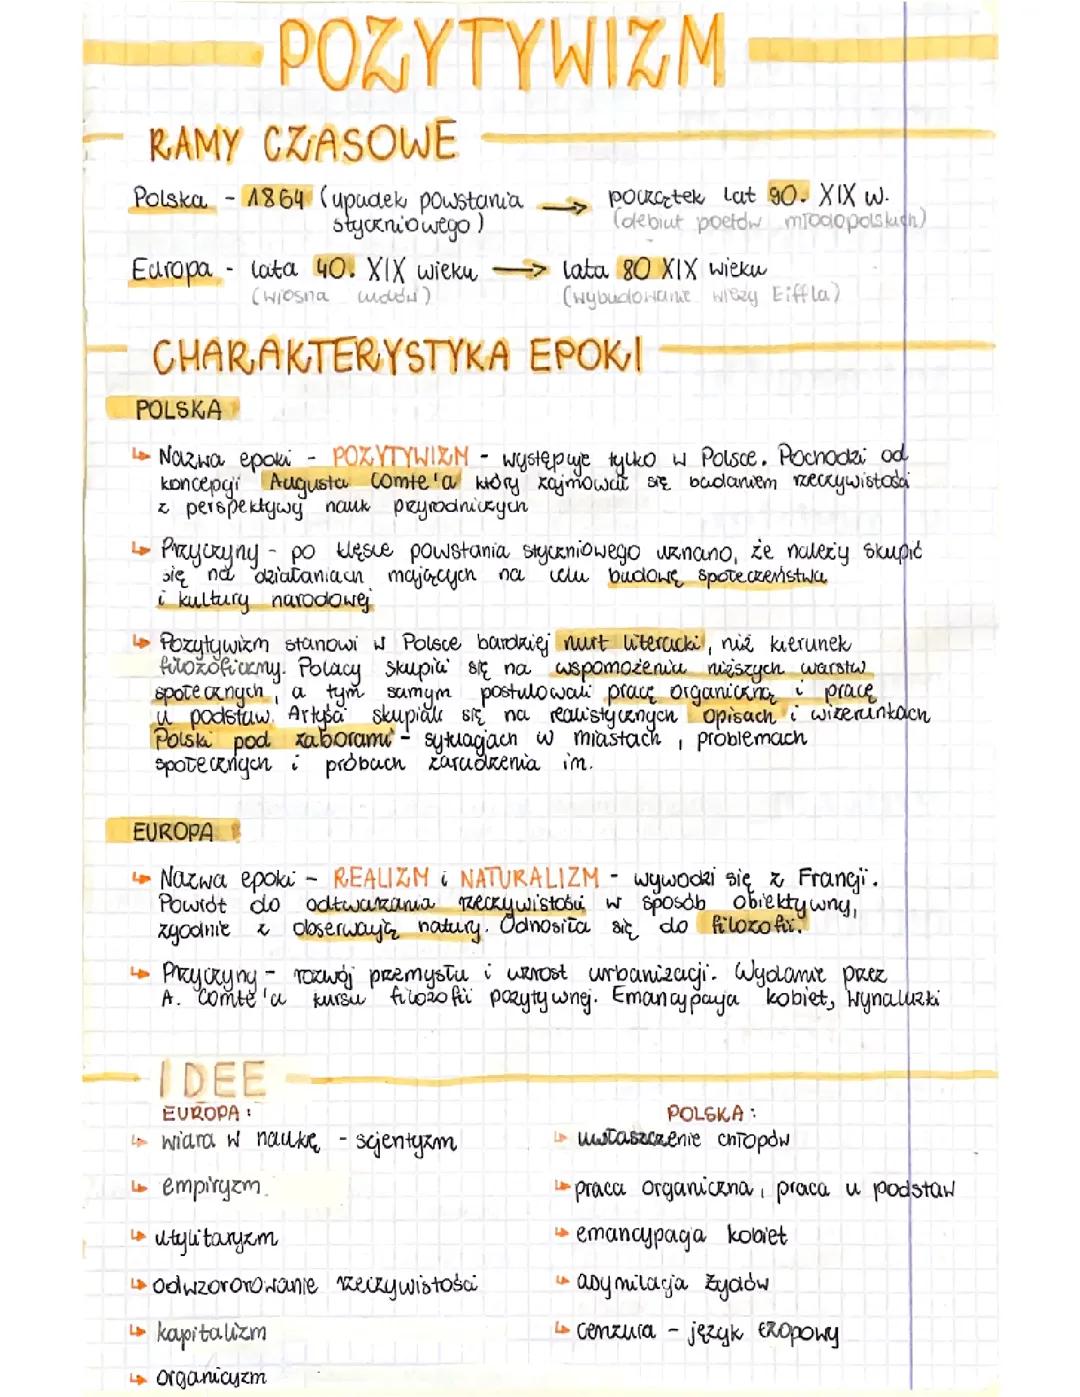 POZYTYWIZM
RAMY CZASOWE
Polska - 1864 (upadek powstania → początek lat 90. XIX w.
styczniowego) (debiut poetów młodopolskich)
Europa - lata 40. XIX wieku → lata 80 XIX wieku
(wiosna ludów) (wybudowanie wieży Eiffla)
CHARAKTERYSTYKA EPOKI
POLSKA
↳ Nazwa epoki - POZYTYWIZM - występuje tylko w Polsce. Pochodzi od
koncepcji Augusta Comte'a który zajmował się badaniem rzeczywistości
z perspektywy nauk przyrodniczych
↳ Przyczyny - po klęsce powstania styczniowego uznano, że należy skupić
się na działaniach mających na celu budowę społeczeństwa
i kultury narodowej
↳ Pozytywizm stanowi w Polsce bardziej nurt literacki, niż kierunek
filozoficzny. Polacy skupili się na wspomożeniu niższych warstw
społecznych, a tym samym postulowali pracę organiczną i pracę
u podstaw. Artyści skupiali się na realistycznych opisach i wizerunkach
Polski pod zaborami - sytuacjach w miastach, problemach
społecznych i próbach zaradzenia im.
EUROPA
↳ Nazwa epoki - REALIZM i NATURALIZM - wywodzi się z Francji.
Powrót do odtwarzania rzeczywistości w sposób obiektywny,
zgodnie z obserwacją natury. Odnosiła się do filozofii.
↳ Przyczyny - rozwój przemysłu i wzrost urbanizacji. Wydanie przez
A. Comte'a kursu filozofii pozytywnej. Emancypacja kobiet, Wynalazki
IDEE
EUROPA: POLSKA:
↳ wiara w naukę - scjentyzm ↳ uwłaszczenie chłopów
↳ empiryzm. ↳ praca organiczna, praca u podstaw
↳ utylitaryzm ↳ emancypacja kobiet
↳ odwzororowanie rzeczywistości ↳ asymilacja Żydów
↳ kapitalizm ↳ cenzura - język ezopowy
↳ organicyzm